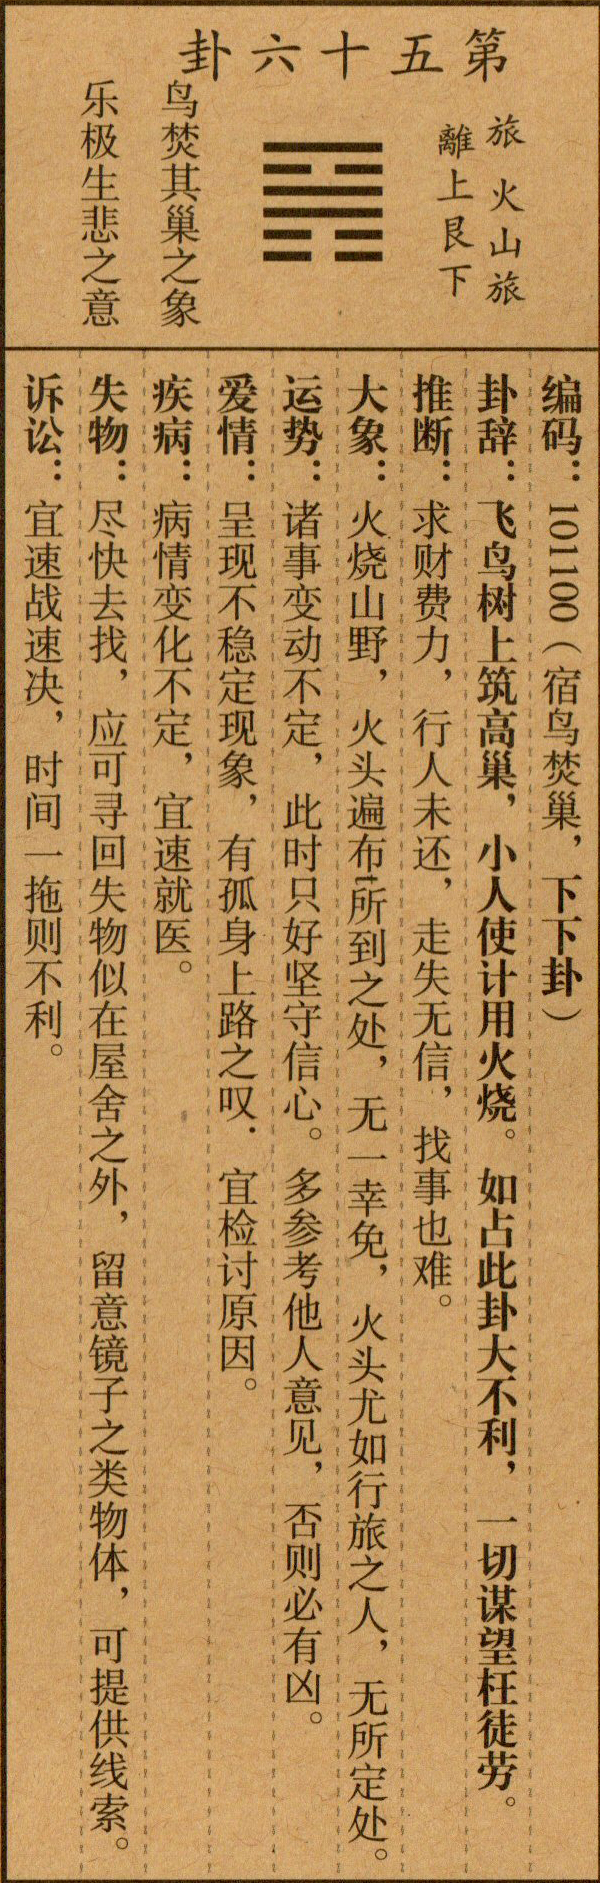 第五十六卦
旅 火山旅
離上艮下
鸟焚其巢之象
乐极生悲之意
编码：101100（宿鸟焚巢，下下卦）
卦辞：飞鸟树上筑高巢，小人使计用火烧。如占此卦大不利，一切谋望枉徒劳。
推断：求财费力，行人未还，走失无信，找事也难。
大象：火烧山野，火头遍布所到之处，无一幸免，火头尤如行旅之人，无所定处。
运势：诸事变动不定，此时只好坚守信心。多参考他人意见，否则必有凶。
爱情：呈现不稳定现象，有孤身上路之叹．宜检讨原因。
疾病：病情变化不定，宜速就医。
失物：尽快去找，应可寻回失物似在屋舍之外，留意镜子之类物体，可提供线索。
诉讼：宜速战速决，时间一拖则不利。